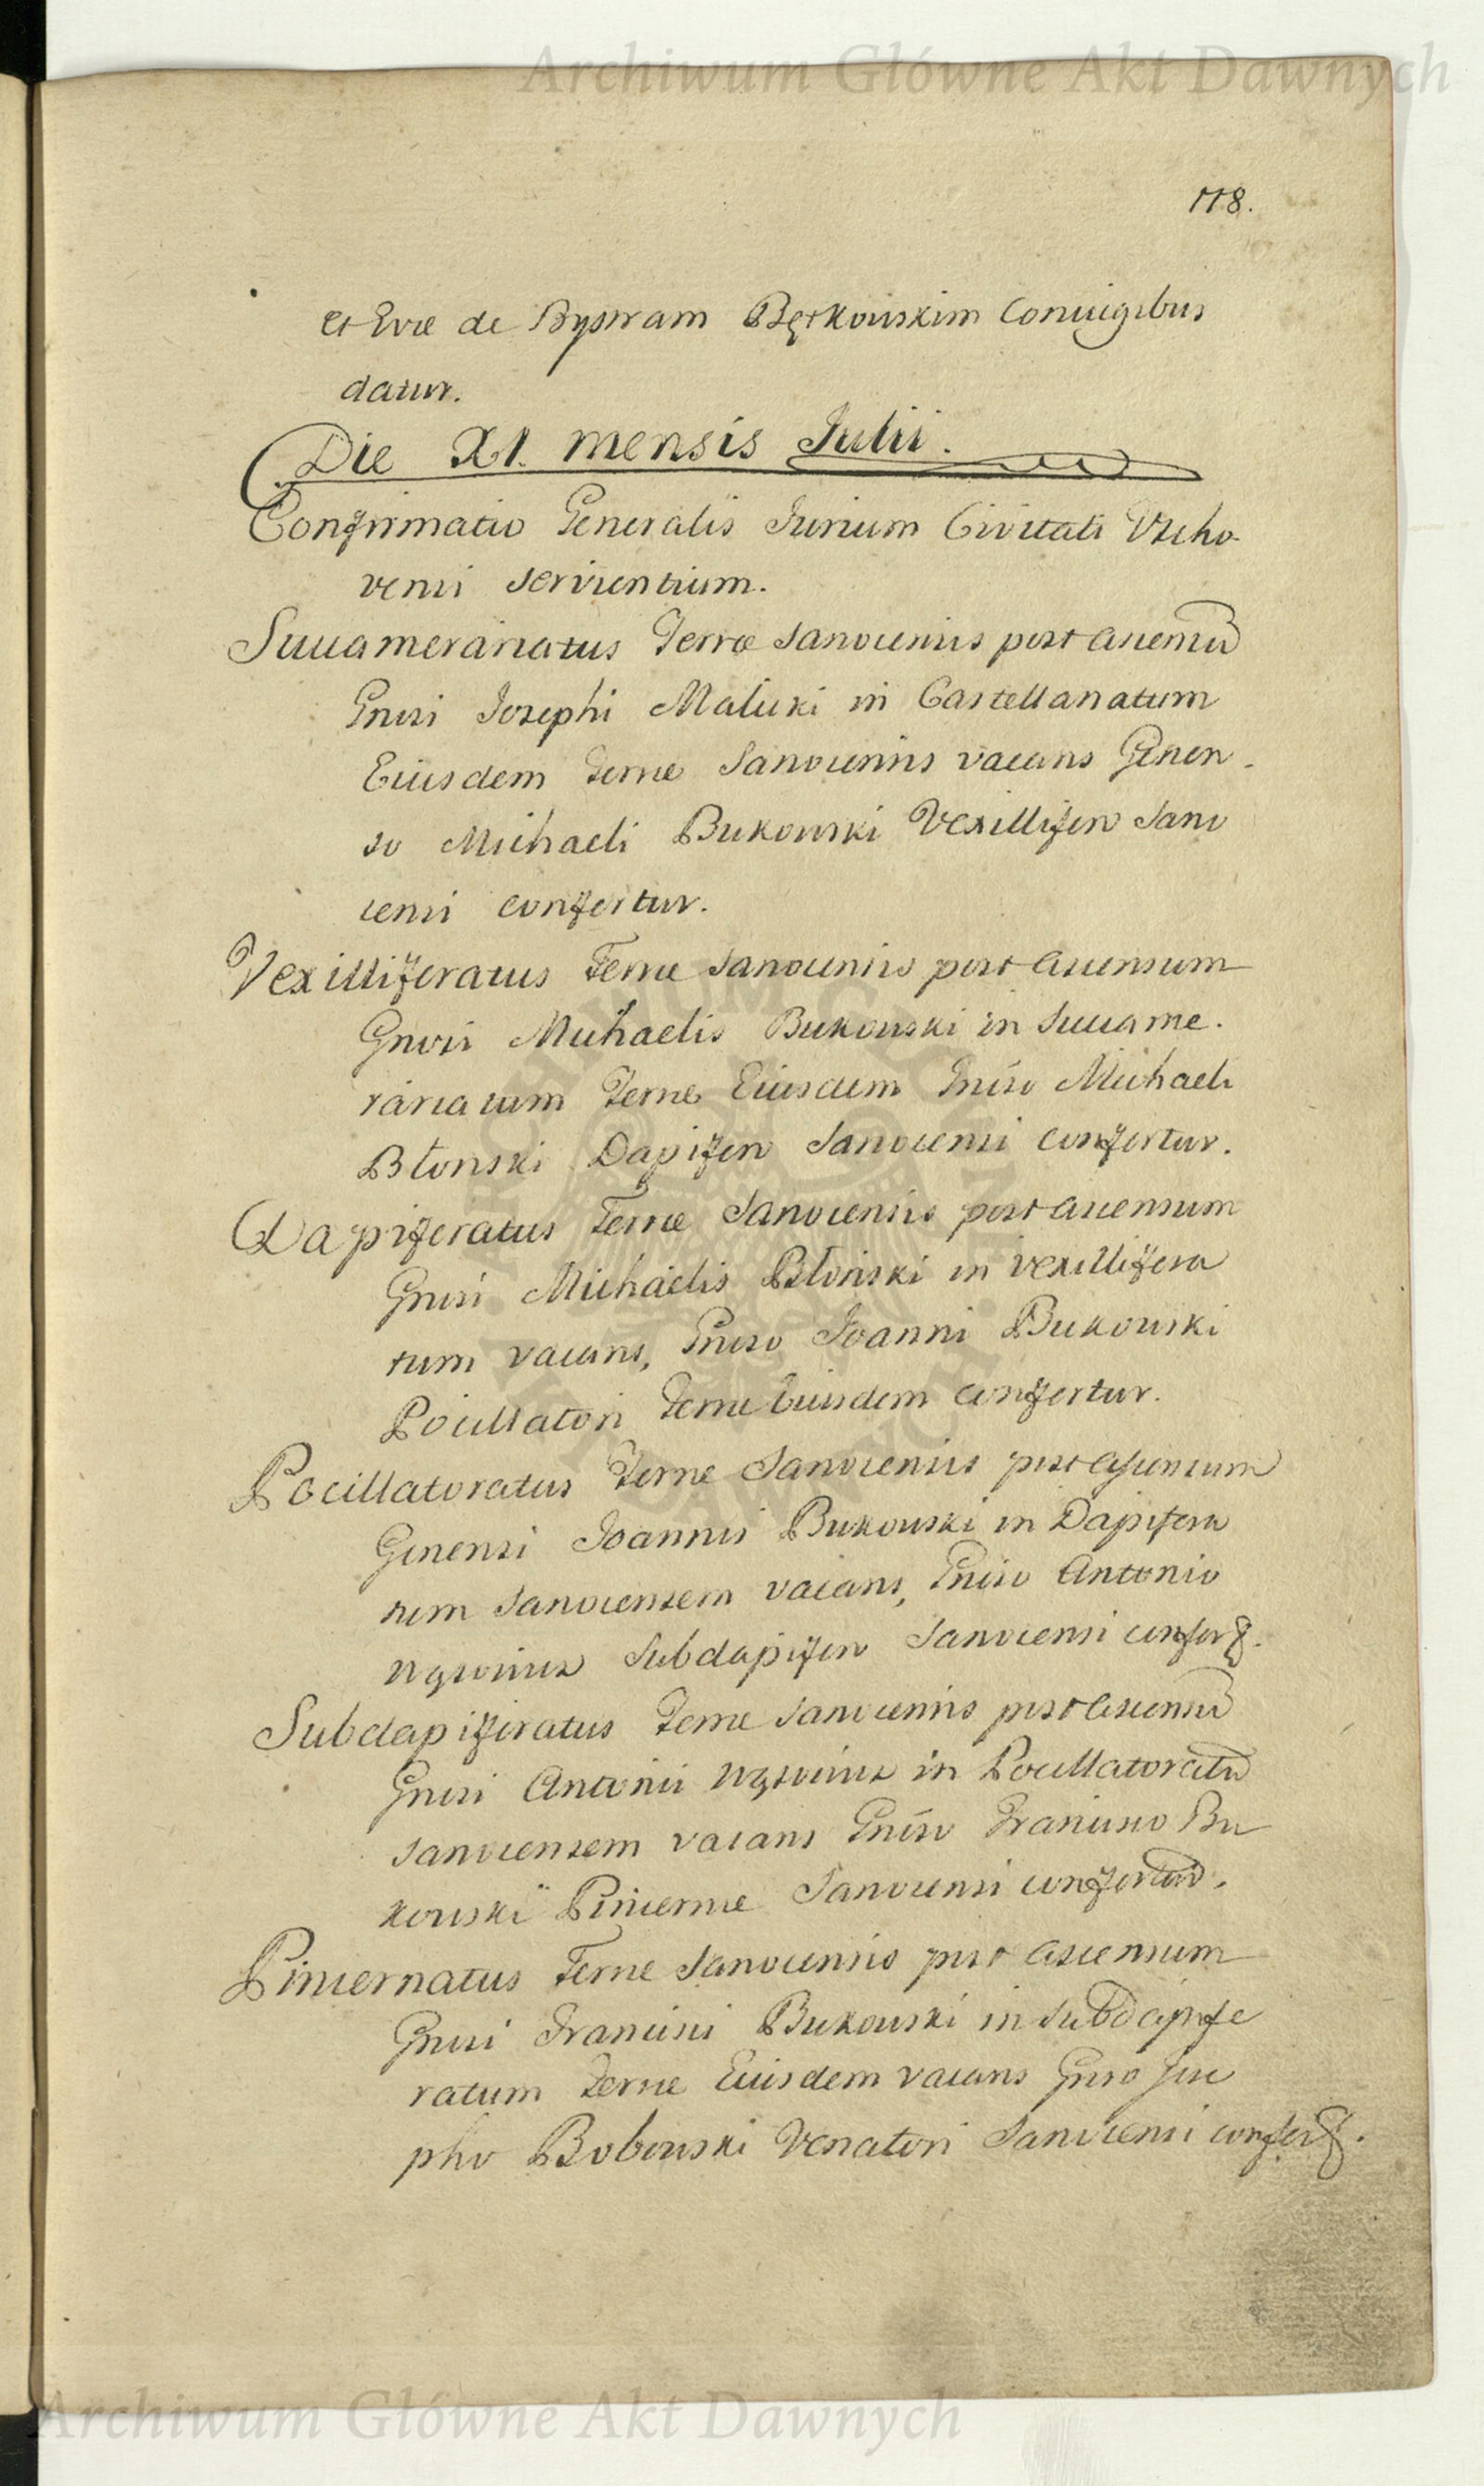 Archiwum Główne Akt Dawnych
118.
et Evæ de Bystram Bętkowskim Coniugibus
datur.
Die XI. mensis Julii.
Confirmatio Generalis Jurium Civitati Vscho-
vensi servientium.
Succamerariatus Terræ Sanocensis post ascensū
Gnsi Josephi Malicki in Castellanatum
Eiusdem Terræ Sanocensis vacans Genen-
so Michaeli Bukowski Vexillifero Sano
censi confertur.
Vexilliferatus Terræ Sanocensis post ascensum
Gnosi Michaelis Bukowski in Succame-
rariatum Terræ Eiusdem Gnso Michaeli
Błonski Dapifero Sanocensi confertur.
Dapiferatus Terræ Sanocensis post ascensum
Gnsi Michaelis Błoński in vexillifera
tum vacans, Gnso Joanni Bukowski
Pocillatori Terræ Eiusdem confertur.
Pocillatoratus Terræ Sanocensis post ascensum
Genensi Joannis Bukowski in Dapifera
tum Sanocensem vacans, Gnso Antonio
Subdapifero Sanocensi confert.
Subdapiferatus Terræ Sanocensis post ascensū
Gnsi Antonii in Pocillatoratū
Sanocensem vacans Gnso Francisco Bu
kowski Pincernæ Sanocensi confertur.
Pincernatus Terræ Sanocensis post ascensum
Gnsi Francisci Bukowski in Subdapife
ratum Terræ Eiusdem vacans Gnso Jose
pho Bobowski Venatori Sanocensi confert.
Archiwum Główne Akt Dawnych